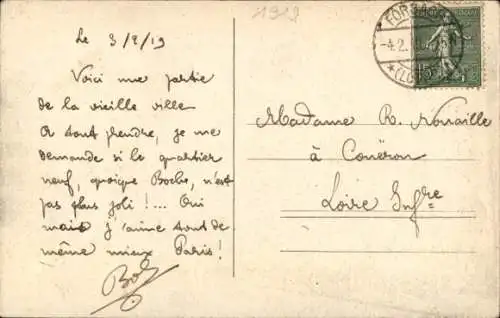 1919
Le 3/2/19
Voici une partie
de la vieille ville
A tout prendre, je me
demande si le quartier
neuf, quoique Boche, n'est
pas plus joli !... Oui
mais j'aime tout de
même mieux Paris !
Bob
FORBACH
-4.2.
*(LO
15
Madame R. Nouaille
à Couëron
Loire Infre